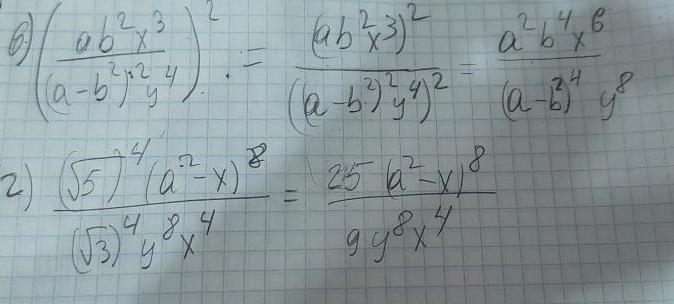 в) (ab²x³ / (a-b²)²y⁴)² = (ab²x³)² / ((a-b²)²y⁴)² = a²b⁴x⁶ / (a-b²)⁴ y⁸
г) (√5)⁴(a²-x)⁸ / (√3)⁴y⁸x⁴ = 25 (a²-x)⁸ / 9y⁸x⁴